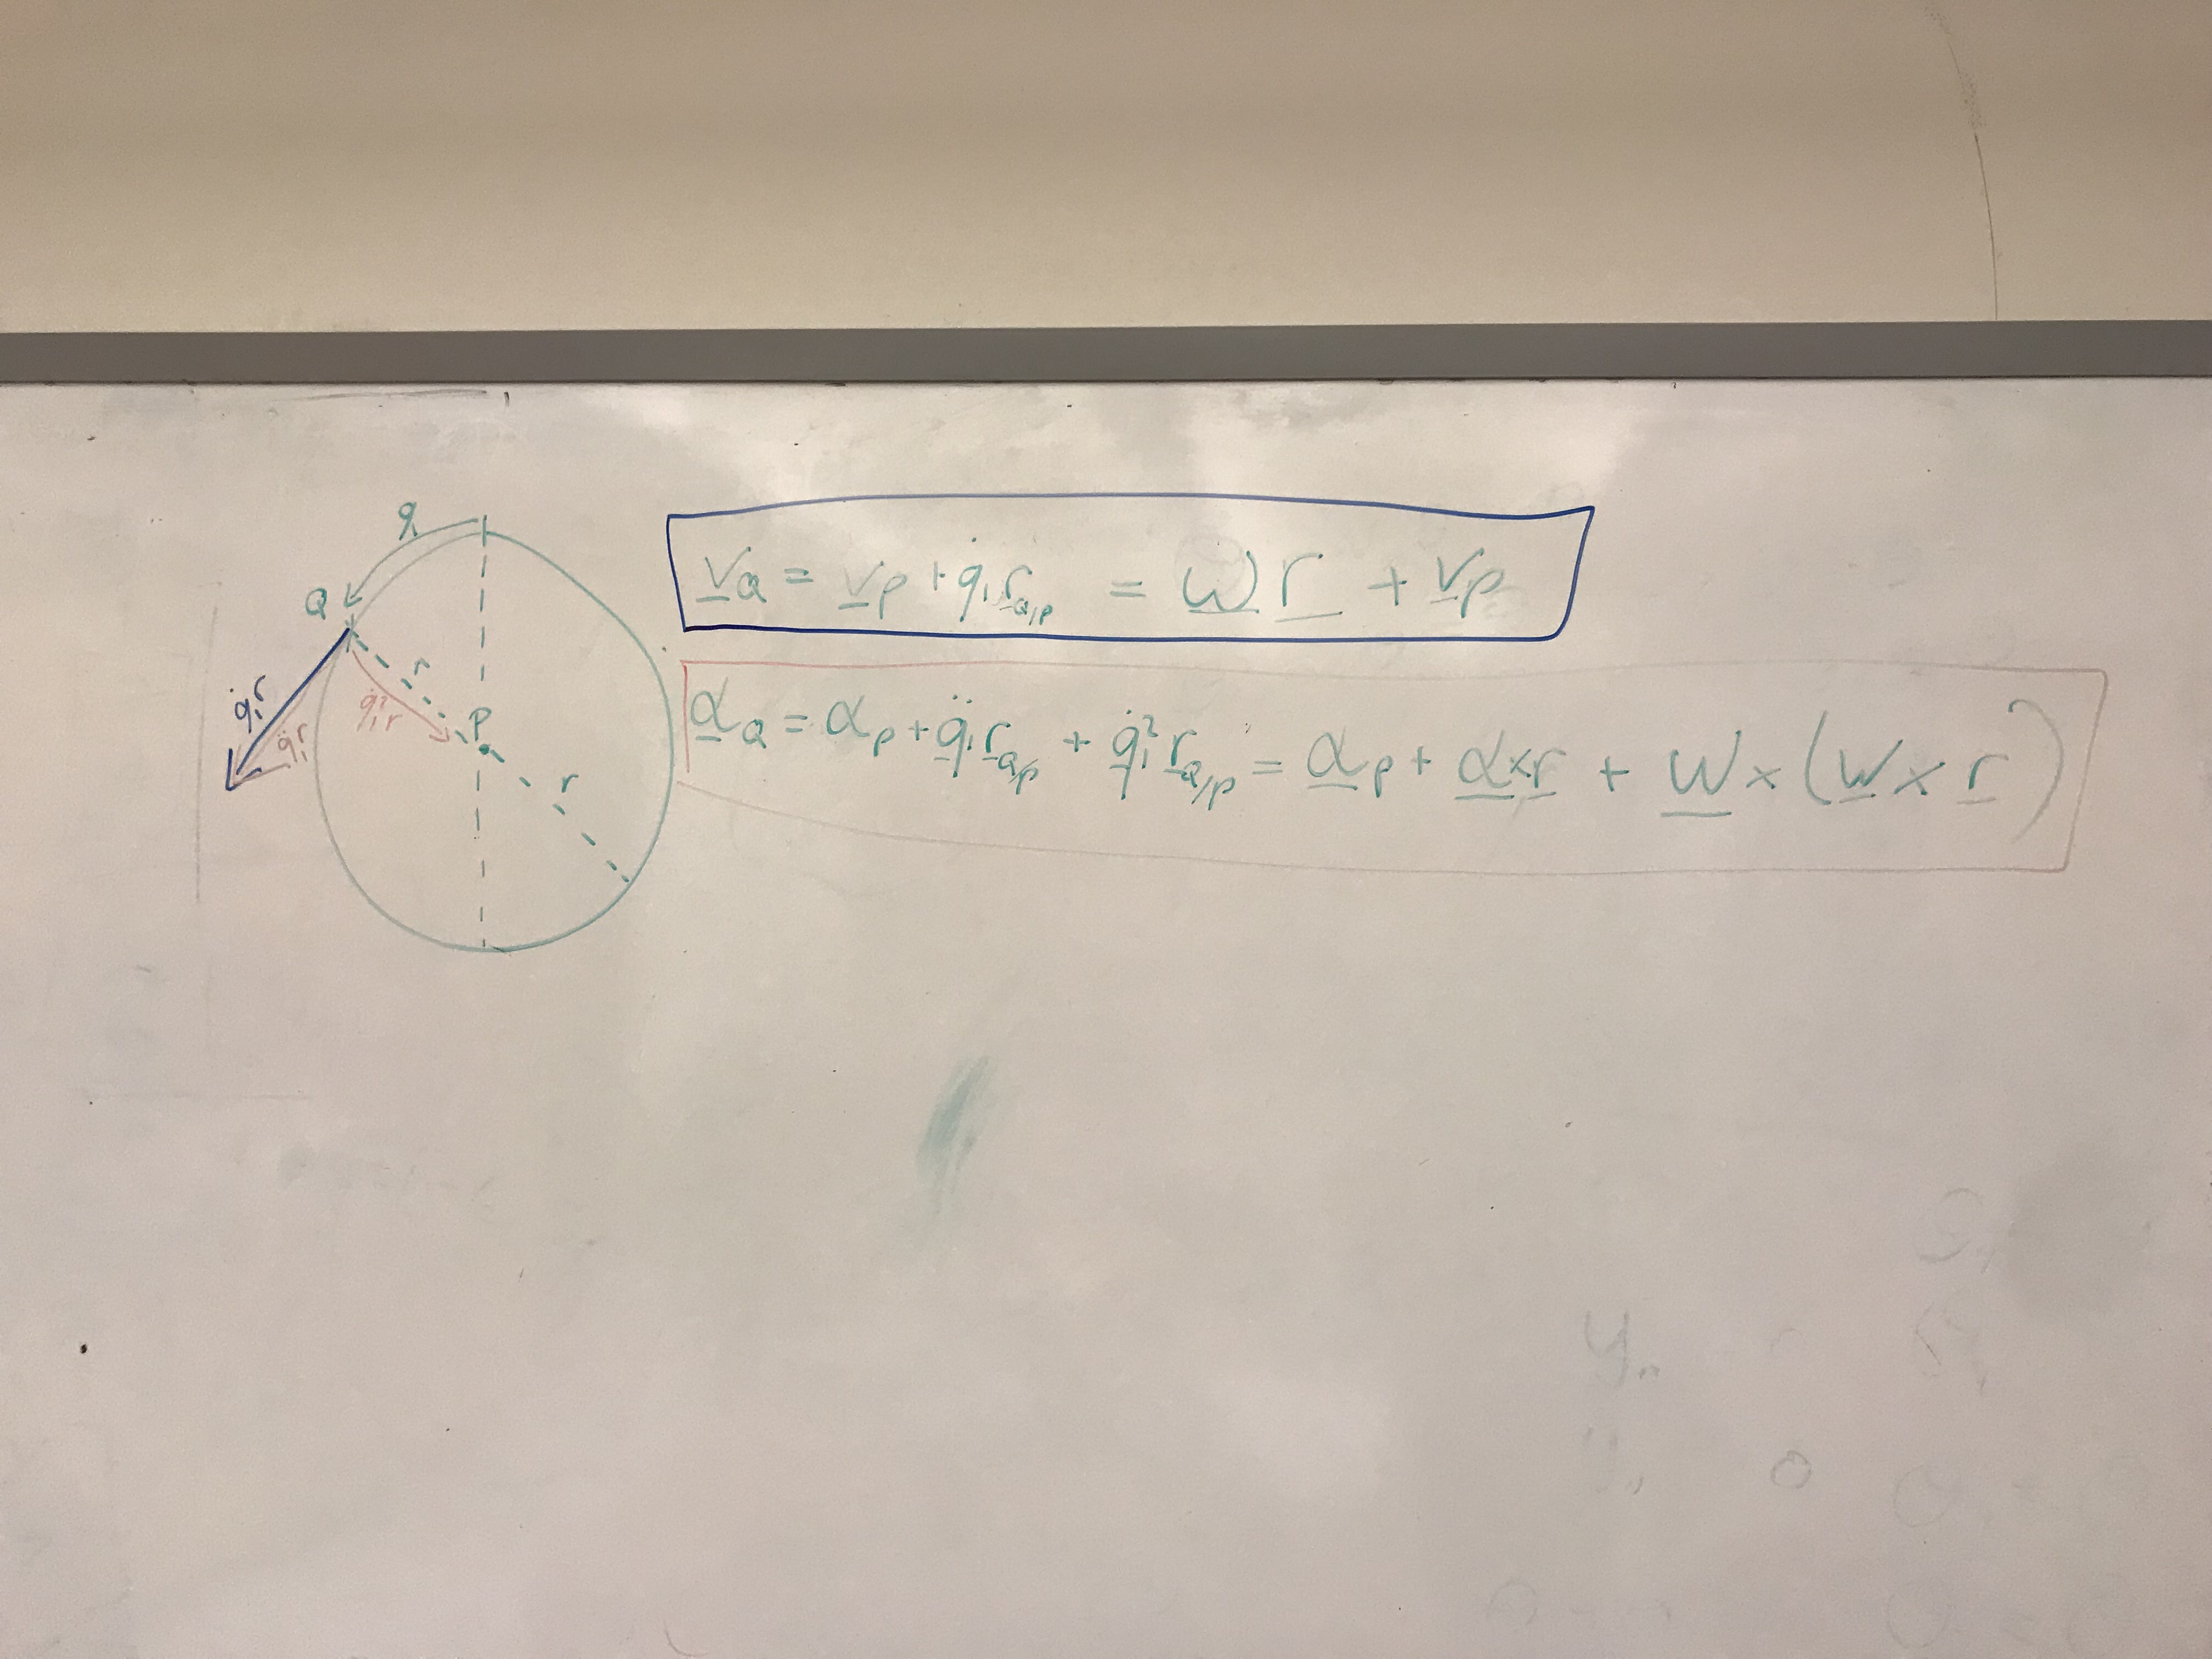 q₁
Q
r
q̇₁r
q̈₁r
q̇₁²r
P
r
v_Q = v_P + q̇₁ r_Q/P = ω r + v_P
α_Q = α_P + q̈₁ r_Q/P + q̇₁² r_Q/P = α_P + α × r + ω × (ω × r)